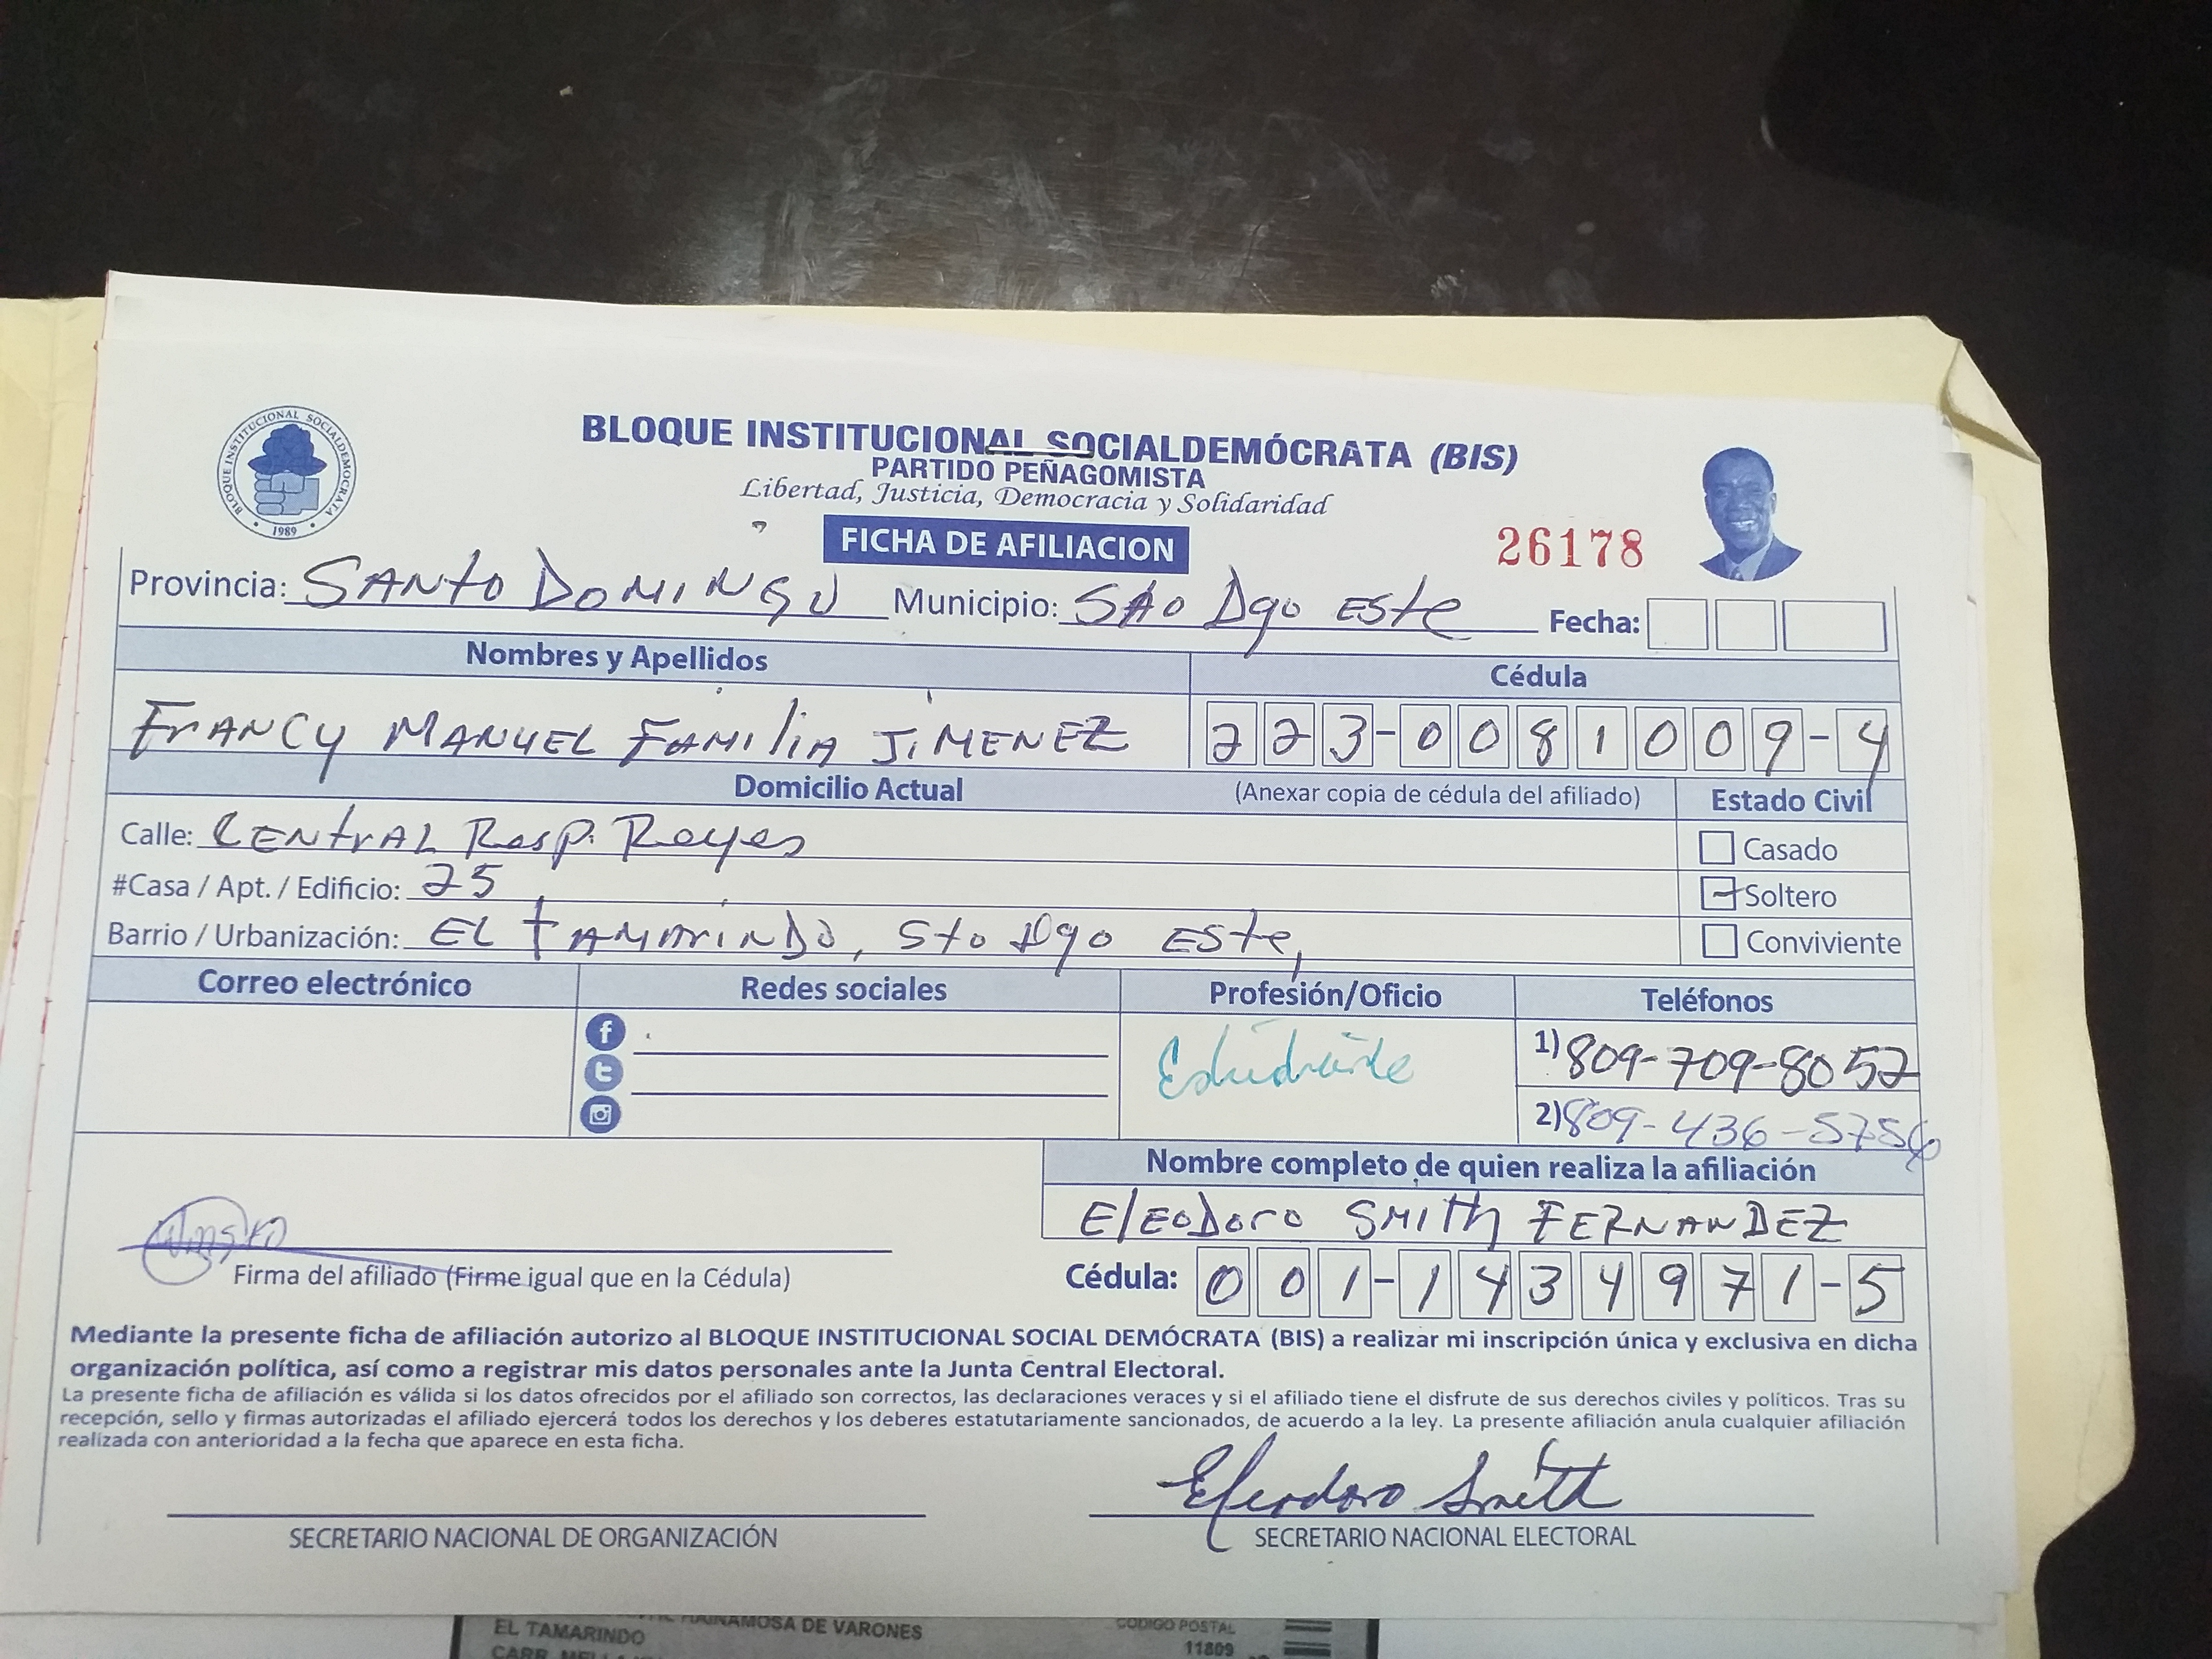 BLOQUE INSTITUCIONAL SOCIALDEMÓCRATA
1989
BLOQUE INSTITUCIONAL SOCIALDEMÓCRATA (BIS)
PARTIDO PEÑAGOMISTA
Libertad, Justicia, Democracia y Solidaridad
FICHA DE AFILIACION
26178
Provincia: SANTO DOMINGO Municipio: STO Dgo ESte Fecha:
Nombres y Apellidos Cédula
FrANCY MANUEL FAMILIA JIMENEZ 223-0081009-4
Domicilio Actual (Anexar copia de cédula del afiliado) Estado Civil
Calle: CENTRAL Resp. Reyes
Casado
#Casa / Apt. / Edificio: 25
Soltero
Barrio / Urbanización: EL TAMARINDO, Sto Dgo ESte,
Conviviente
Correo electrónico Redes sociales Profesión/Oficio Teléfonos
Estudiante
1) 809-709-8052
2) 809-436-5756
Nombre completo de quien realiza la afiliación
ElEODoro SMITh FERNANDEZ
Firma del afiliado (Firme igual que en la Cédula)
Cédula: 001-1434971-5
Mediante la presente ficha de afiliación autorizo al BLOQUE INSTITUCIONAL SOCIAL DEMÓCRATA (BIS) a realizar mi inscripción única y exclusiva en dicha
organización política, así como a registrar mis datos personales ante la Junta Central Electoral.
La presente ficha de afiliación es válida si los datos ofrecidos por el afiliado son correctos, las declaraciones veraces y si el afiliado tiene el disfrute de sus derechos civiles y políticos. Tras su
recepción, sello y firmas autorizadas el afiliado ejercerá todos los derechos y los deberes estatutariamente sancionados, de acuerdo a la ley. La presente afiliación anula cualquier afiliación
realizada con anterioridad a la fecha que aparece en esta ficha.
Eleodoro Smith
SECRETARIO NACIONAL DE ORGANIZACIÓN SECRETARIO NACIONAL ELECTORAL
DE VARONES
CODIGO POSTAL
EL TAMARINDO
11809